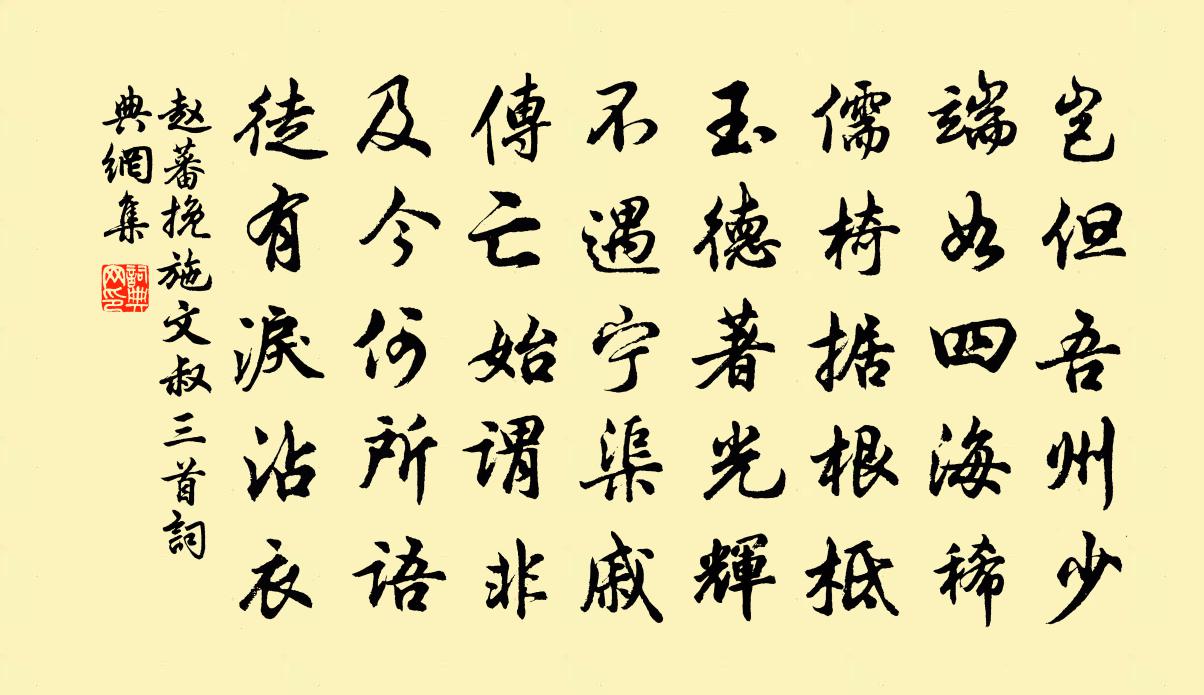 岂但吾州少
端如四海稀
儒椅据根柢
玉德著光輝
不遇宁渠戚
傳亡始謂非
及今何所語
徒有淚沾衣
赵蕃挽施文叔三首詞
典網集
詞典网印